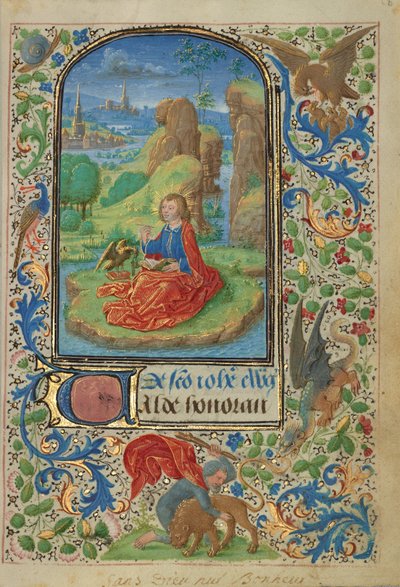 De sc̄o ioh̄e ew̄g
VAlde honoran
Sans Dieu nul Bonheur